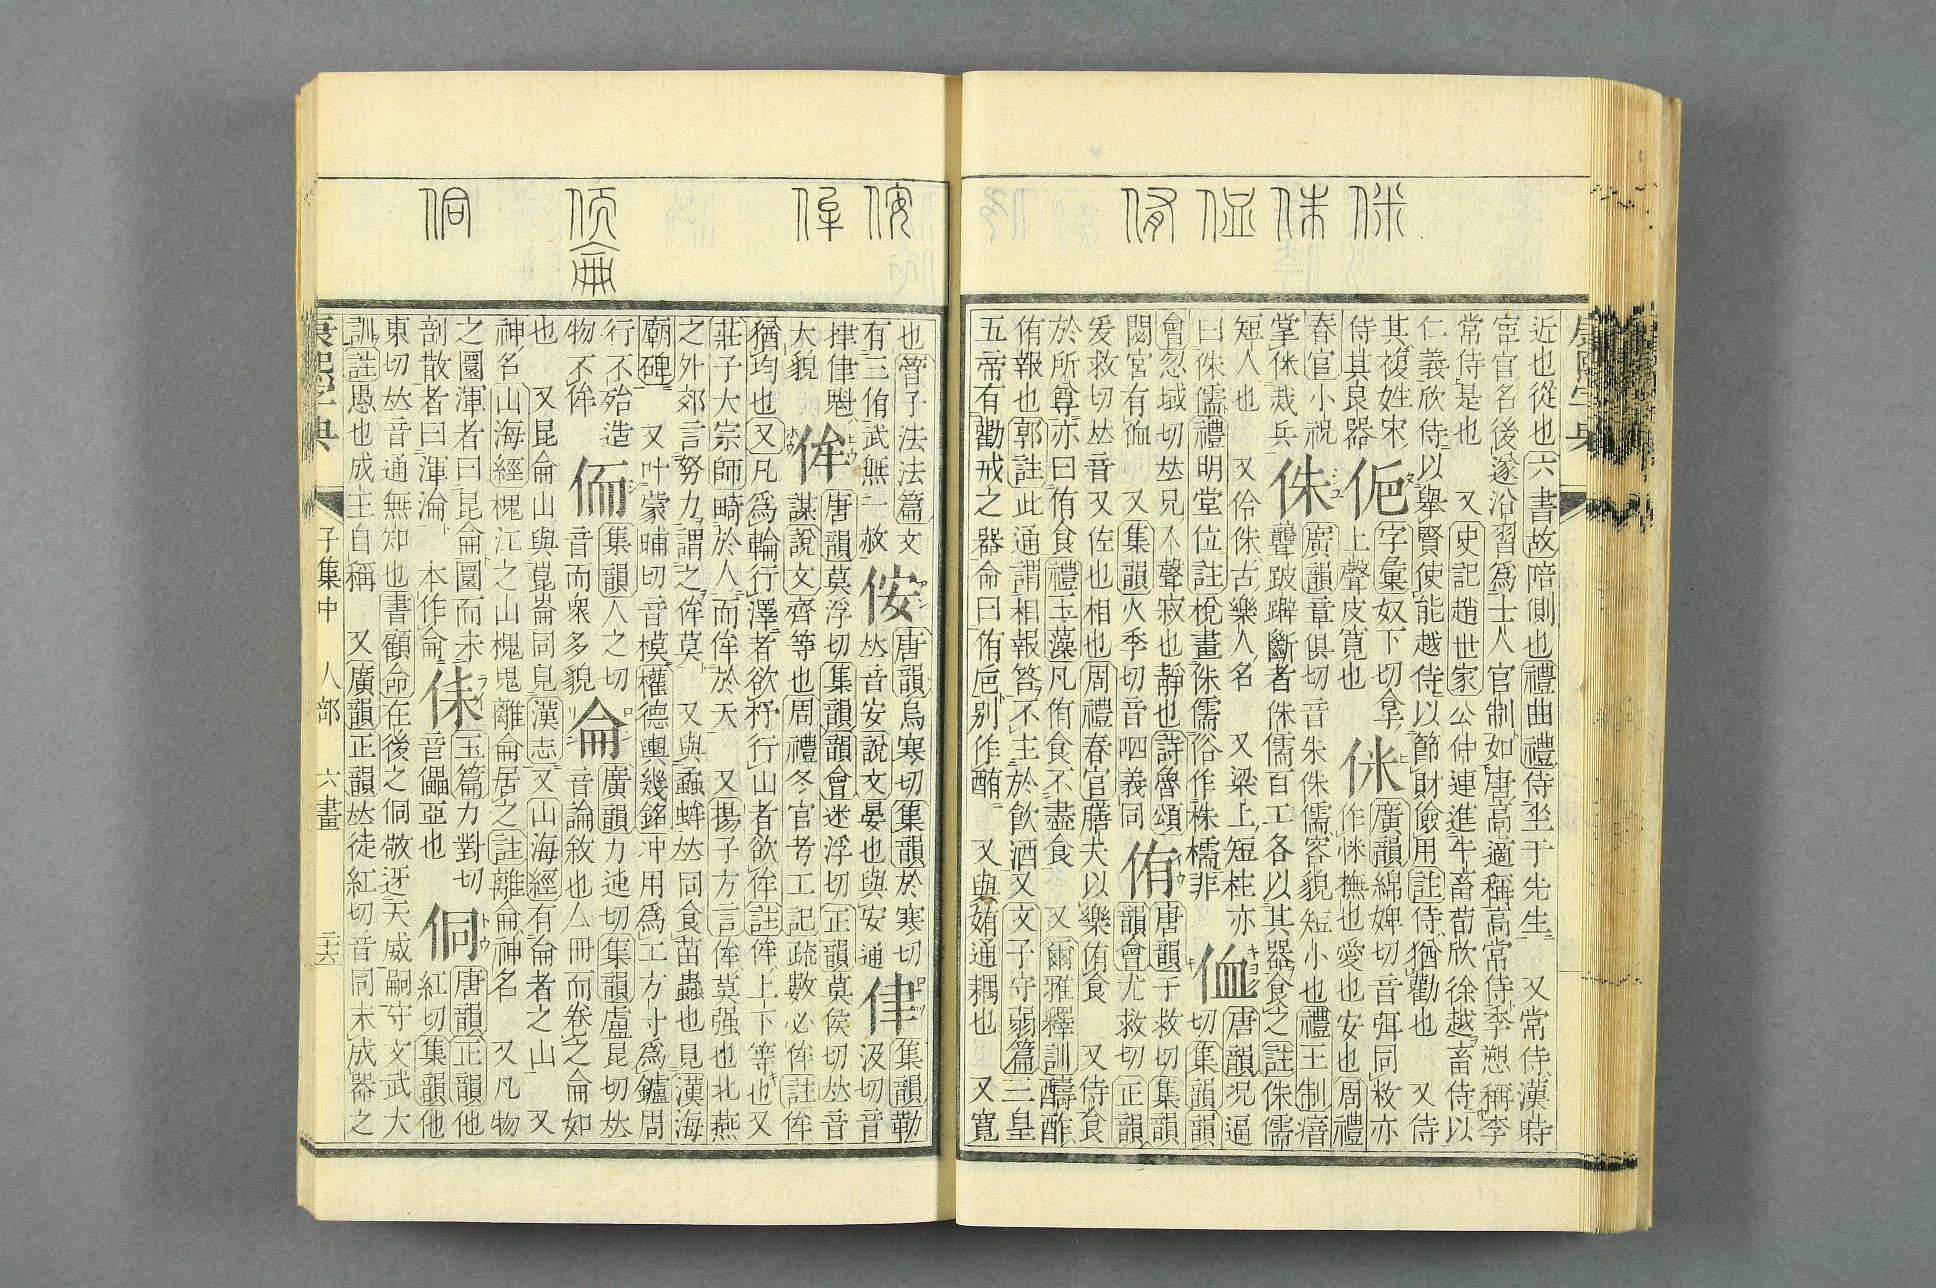 近也從也六書故陪側也禮曲禮侍坐于先生 又常侍漢時
宦官名後遂沿習爲士人官制如唐高適稱高常侍李愬稱李
常侍是也 又史記趙世家公仲連進牛畜荀欣徐越畜侍以
仁義欣侍以舉賢使能越侍以節財儉用註侍猶勸也 又侍
其複姓宋
侍其良器
㑚
字彙奴下切拿
上聲皮寬也
侎
廣韻綿婢切音弭同敉亦
作㤇撫也愛也安也周禮
春官小祝
掌侎烖兵
侏
廣韻章俱切音朱侏儒容貌短小也禮王制瘖
聾跛躃斷者侏儒百工各以其器食之註侏儒
短人也 又伶侏古樂人名 又梁上短柱亦
曰侏儒禮明堂位註梲畫侏儒俗作株檽非
侐
唐韻況逼
切集韻韻
會忽域切𠀤兄入聲寂也靜也詩魯頌
閟宮有侐 又集韻火季切音呬義同
侑
唐韻于救切集韻
韻會尤救切正韻
爰救切𠀤音又佐也相也周禮春官膳夫以樂侑食 又侍食
於所尊亦曰侑食禮玉藻凡侑食不盡食 又爾雅釋訓醻酢
侑報也郭註此通謂相報答不主於飲酒又文子守弱篇三皇
五帝有勸戒之器命曰侑卮別作酭 又與姷通耦也 又寬
也管子法法篇文
有三侑武無一赦
侒
唐韻烏寒切集韻於寒切
𠀤音安說文晏也與安通
侓
集韻勒
汲切音
律律魁
大貌
侔
唐韻莫浮切集韻韻會迷浮切正韻莫侯切𠀤音
謀說文齊等也周禮冬官考工記疏數必侔註侔
猶均也又凡爲輪行澤者欲杼行山者欲侔註侔上下等也又
莊子大宗師畸於人而侔於天 又揚子方言侔莫强也北燕
之外郊言努力謂之侔莫 又與蟊蛑𠀤同食苗蟲也見漢海
廟碑 又叶蒙晡切音模權德輿幾銘冲用爲工方寸爲鑪周
行不殆造
物不侔
侕
集韻人之切
音而衆多貌
侖
廣韻力迍切集韻盧昆切𠀤
音論敘也亼冊而卷之侖如
也 又昆侖山與崑崙同見漢志又山海經有侖者之山 又
神名山海經槐江之山槐鬼離侖居之註離侖神名 又凡物
之圜渾者曰昆侖圜而未
剖散者曰渾淪 本作侖
㑍
玉篇力對切
音儡亞也
侗
唐韻正韻他
紅切集韻他
東切𠀤音通無知也書顧命在後之侗敬迓天威嗣守文武大
訓註愚也成王自稱 又廣韻正韻𠀤徒紅切音同未成器之
子集中 人部 六畫 二十六